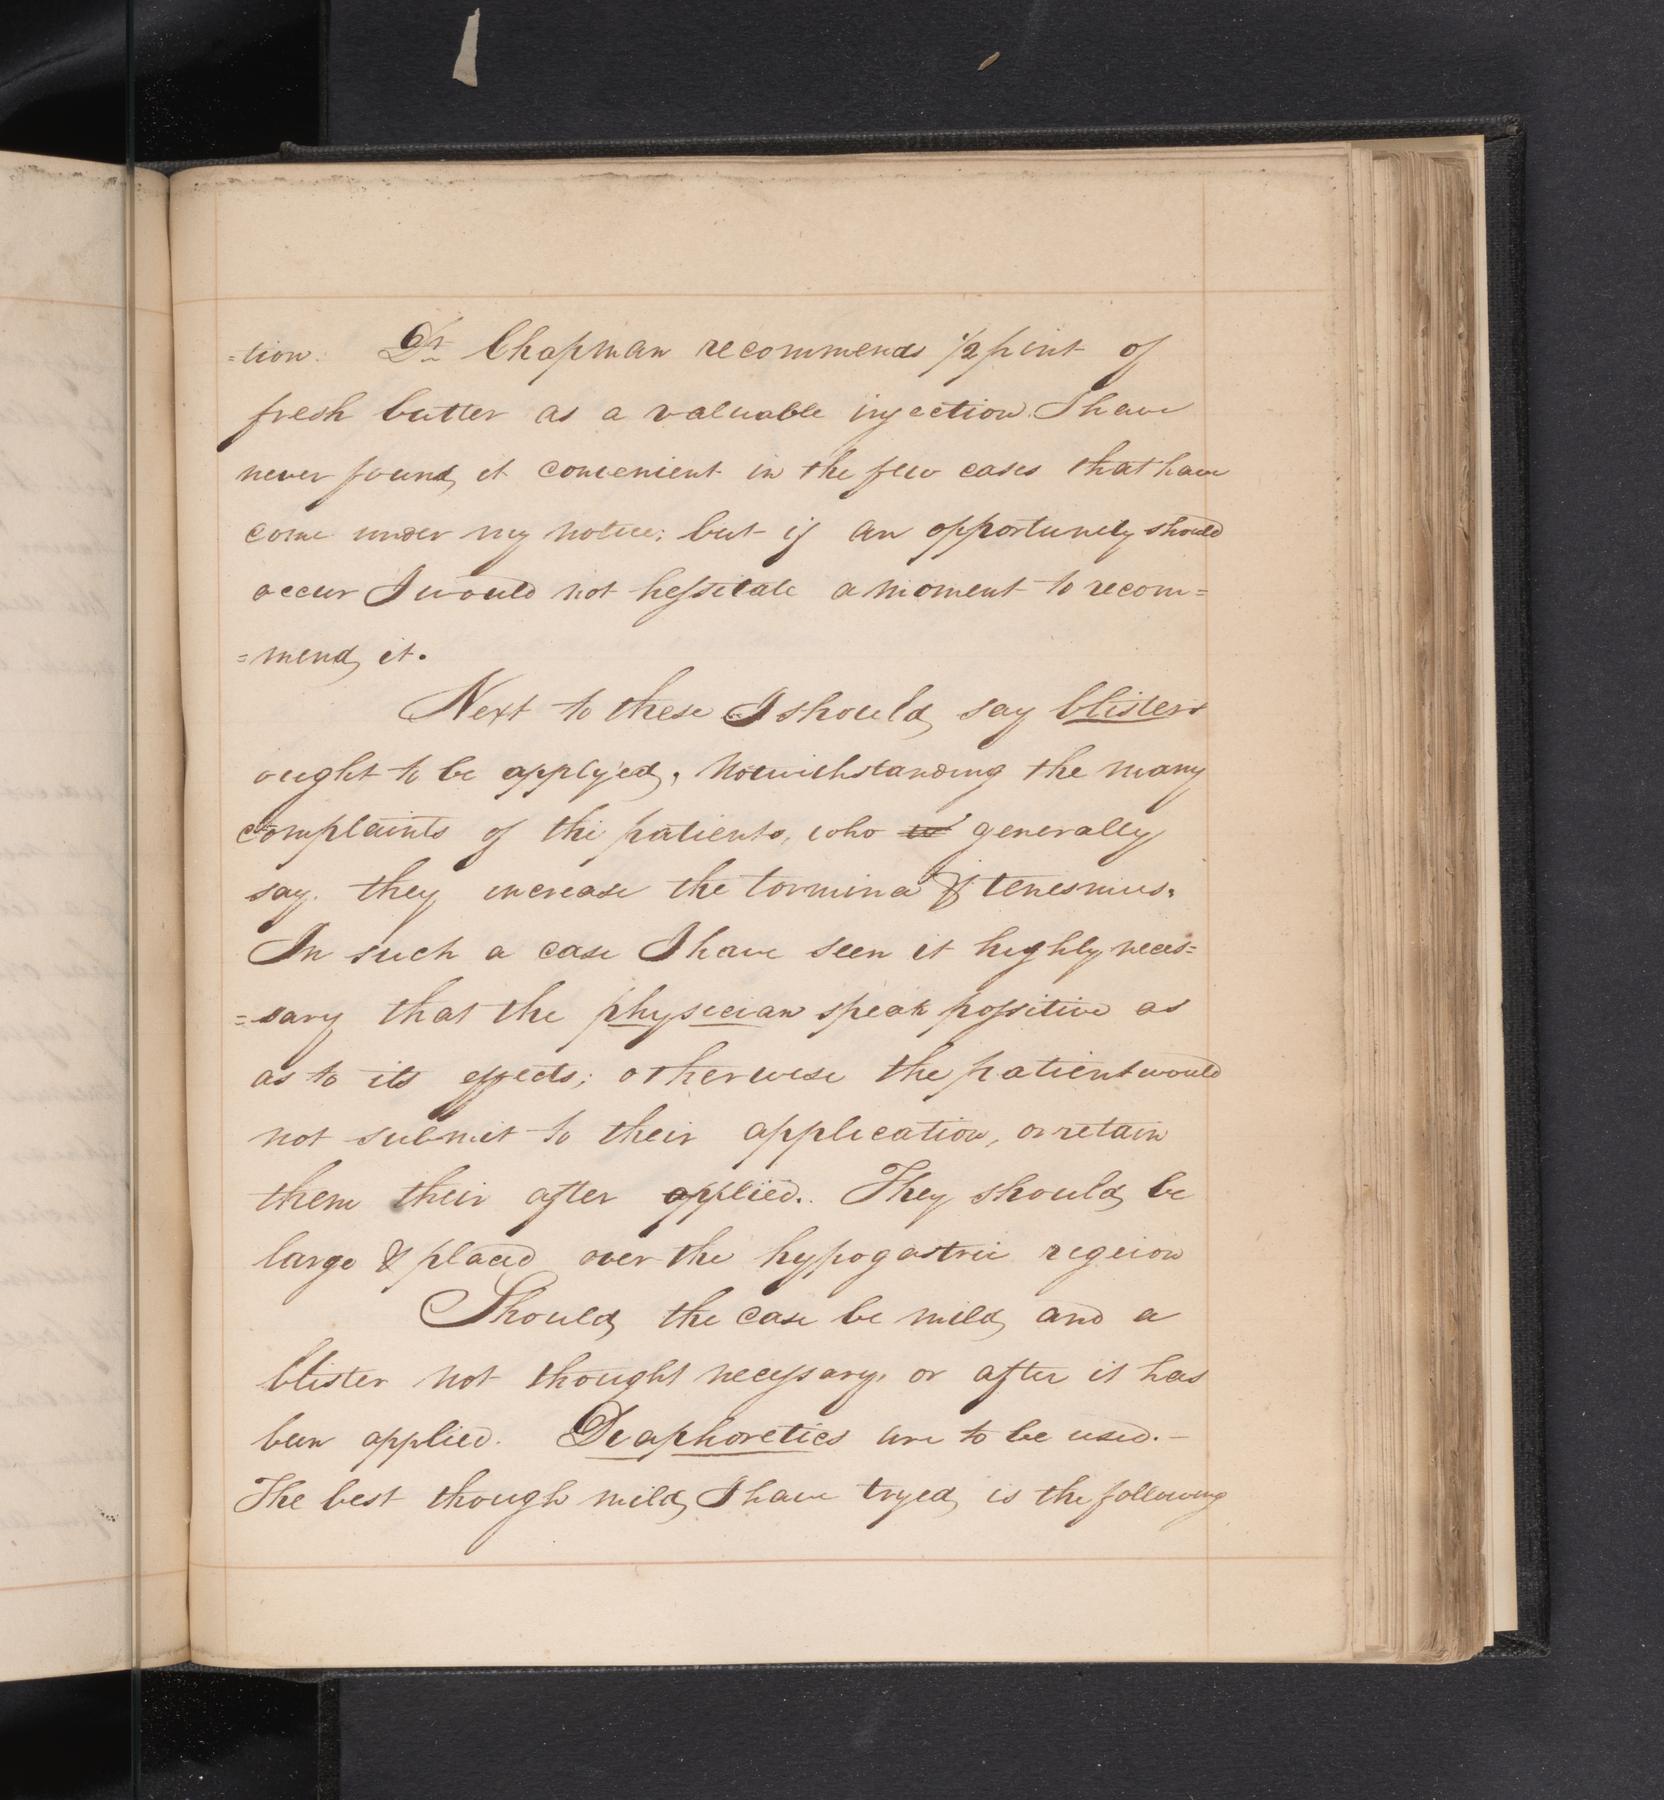 =tion. Dr Chapman recommends 1/2 pint of
fresh butter as a valuable injection. I have
never found it convenient in the few cases that have
come under my notice; but if an opportunity should
occur I would not hessitate a moment to recom=
=mend it.
Next to these I should say blisters
ought to be applyed, Notwithstanding the many
complaints of the patients, who generally
say. they increase the tormina & tenesmus.
In such a case I have seen it highly neces=
=sary that the physician speak possitive as
as to its effects; otherwise the patient would
not submit to their application, or retain
them their after applied. They should be
large & placed over the hypogastric regeion
Should the case be mild and a
blister not thought necessary, or after it has
been applied. Diaphoretics are to be used.-
The best though mild I have tryed is the following